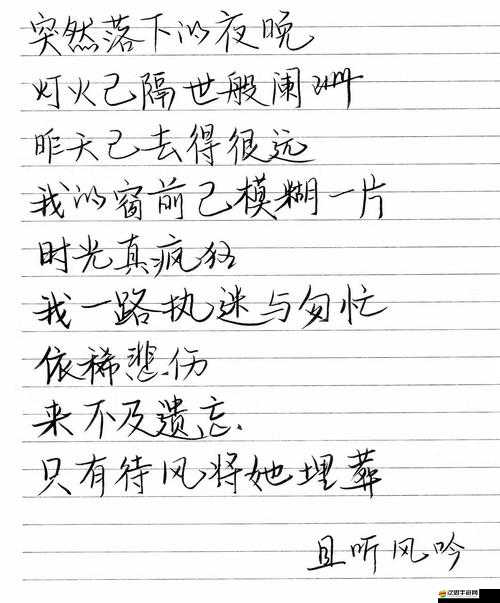 突然落下的夜晚
灯火已隔世般阑珊
昨天已去得很远
我的窗前已模糊一片
时光真疯狂
我一路执迷与匆忙
依稀悲伤
来不及遗忘
只有待风将她埋葬
且听风吟